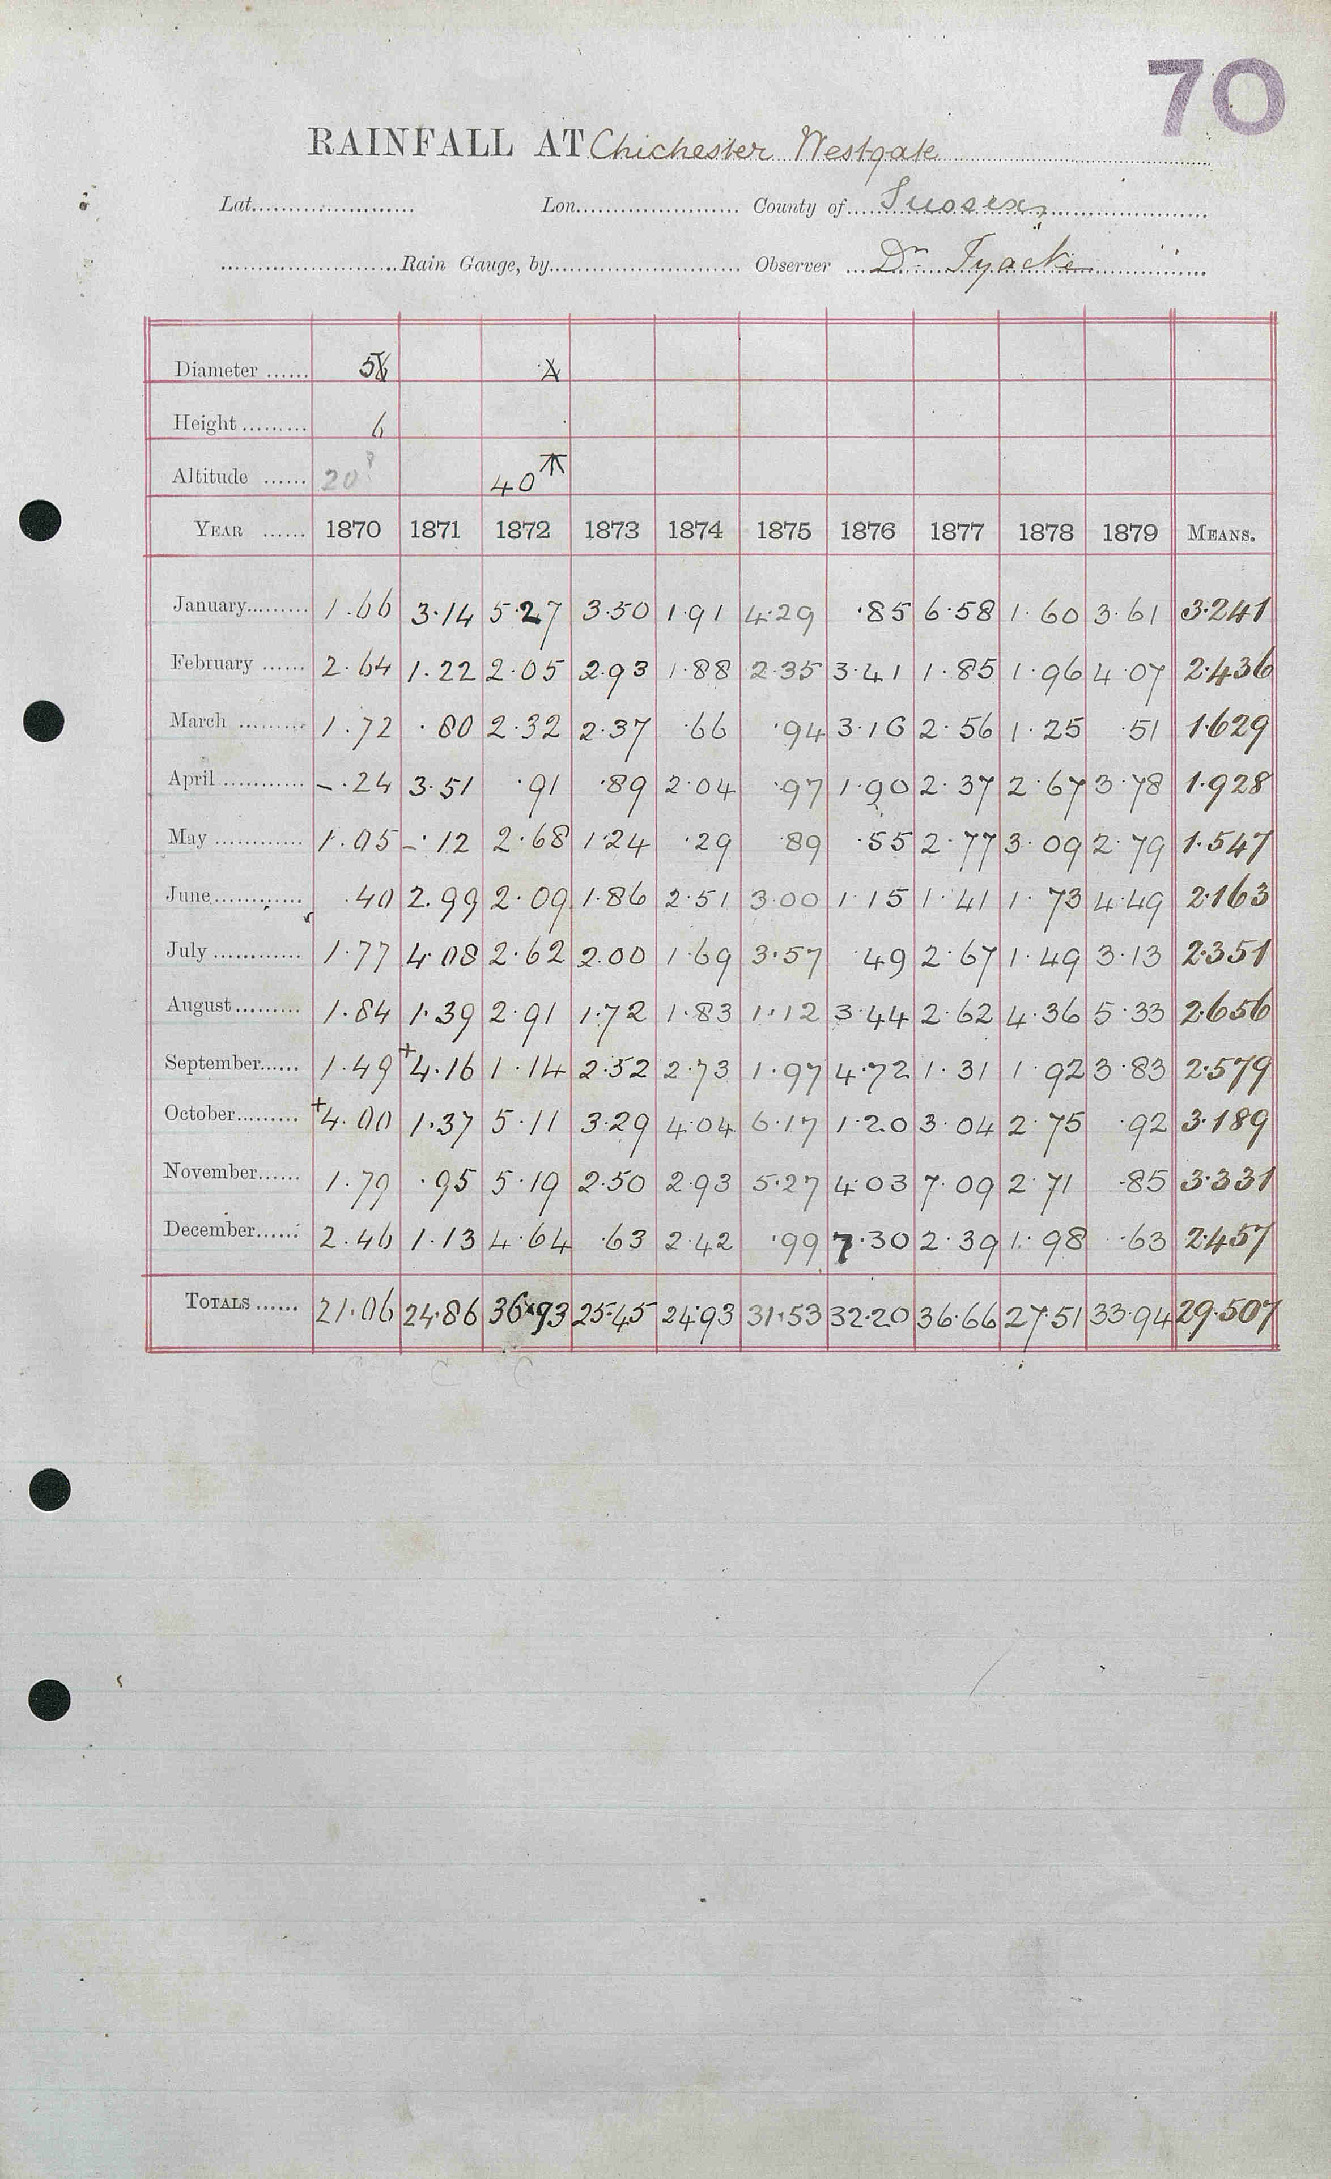 70
RAINFALL AT Chichester Westgate
Lat. Lon. County of Sussex
Rain Gauge, by Observer Dr Tyacke
Diameter 5
Height 6
Altitude 20? 40
YEAR 1870 1871 1872 1873 1874 1875 1876 1877 1878 1879 MEANS.
January 1.66 3.14 5.27 3.50 1.91 4.29 .85 6.58 1.60 3.61 3.241
February 2.64 1.22 2.05 2.93 1.88 2.35 3.41 1.85 1.96 4.07 2.436
March 1.72 .80 2.32 2.37 .66 .94 3.16 2.56 1.25 .51 1.629
April -.24 3.51 .91 .89 2.04 .97 1.90 2.37 2.67 3.78 1.928
May 1.05 -.12 2.68 1.24 .29 .89 .55 2.77 3.09 2.79 1.547
June .40 2.99 2.09 1.86 2.51 3.00 1.15 1.41 1.73 4.49 2.163
July 1.77 4.08 2.62 2.00 1.69 3.57 .49 2.67 1.49 3.13 2.351
August 1.84 1.39 2.91 1.72 1.83 1.12 3.44 2.62 4.36 5.33 2.656
September 1.49 +4.16 1.14 2.52 2.73 1.97 4.72 1.31 1.92 3.83 2.579
October +4.00 1.37 5.11 3.29 4.04 6.17 1.20 3.04 2.75 .92 3.189
November 1.79 .95 5.19 2.50 2.93 5.27 4.03 7.09 2.71 .85 3.331
December 2.46 1.13 4.64 .63 2.42 .99 7.30 2.39 1.98 .63 2.457
TOTALS 21.06 24.86 36.93 25.45 24.93 31.53 32.20 36.66 27.51 33.94 29.507